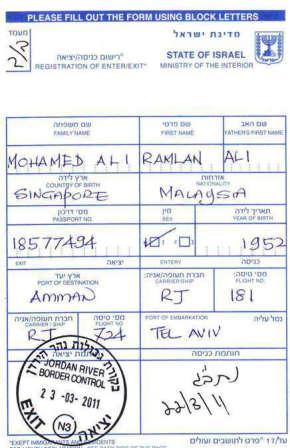 PLEASE FILL OUT THE FORM USING BLOCK LETTERS
מדינת ישראל
STATE OF ISRAEL
MINISTRY OF THE INTERIOR
"רישום כניסה/יציאה
REGISTRATION OF ENTER/EXIT"
שם משפחה שם פרטי שם האב
FAMILY NAME FIRST NAME FATHER'S FIRST NAME
MOHAMED ALI RAMLAN ALI
ארץ לידה אזרחות
COUNTRY OF BIRTH NATIONALITY
SINGAPORE MALAYSIA
מס' דרכון מין תאריך לידה
PASSPORT NO. SEX YEAR OF BIRTH
18577494 1952
EXIT יציאה ENTRY כניסה
ארץ יעד חברת תעופה/אניה: מס' טיסה:
PORT OF DESTINATION CARRIER/SHIP FLIGHT NO.
AMMAN RJ 181
חברת תעופה/אניה מס' טיסה נמל עליה:
CARRIER / SHIP FLIGHT NO. PORT OF EMBARKATION
RJ TEL AVIV
חותמת יציאה חותמת כניסה
ביקורת גבולות נהר הירדן
JORDAN RIVER
BORDER CONTROL
23-03-2011
EXIT N3 יציאה
22/3/11